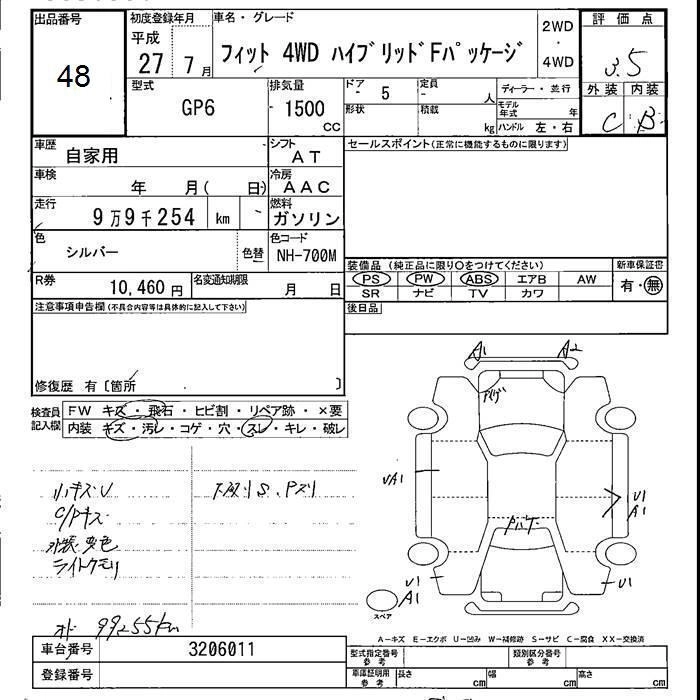 出品番号
48
初度登録年月
平成
27 7月
車名・グレード
フィット 4WD ハイブリッドFパッケージ
2WD
・
4WD
評価点
3.5
外装 内装
C B
型式
GP6
排気量
1500
CC
ドア
5
形状
定員
人
積載
kg
ディーラー・並行
モデル年式 年
ハンドル 左・右
車歴
自家用
シフト
AT
車検
年 月( 日)
冷房
AAC
走行
9万9千254 km
燃料
ガソリン
色
シルバー
色替
色コード
NH-700M
R券
10,460円
名変通知期限
月 日
セールスポイント(正常に機能するものに限ります)
装備品 (純正品に限り○をつけてください)
PS PW ABS エアB AW
SR ナビ TV カワ
新車保証書
有・無
後日品
注意事項申告欄(不具合内容等は具体的に記入して下さい)
修復歴 有〔箇所 〕
検査員記入欄
FW キズ・飛石・ヒビ割・リペア跡・×要
内装 キズ・汚レ・コゲ・穴・スレ・キレ・破レ
小キズU
C/Pキズ
外装・変色
ライトクモリ
下廻りS、Pズリ
オド 99255km
A1 A2
UA1
U1
A1
U1
A1
U1
スペア
A−キズ E−エクボ U−凹み W−補修跡 S−サビ C−腐食 XX−交換済
車台番号 3206011
登録番号
型式指定番号 参考
類別区分番号 参考
車庫証明用 参考
長さ cm
幅 cm
高さ cm